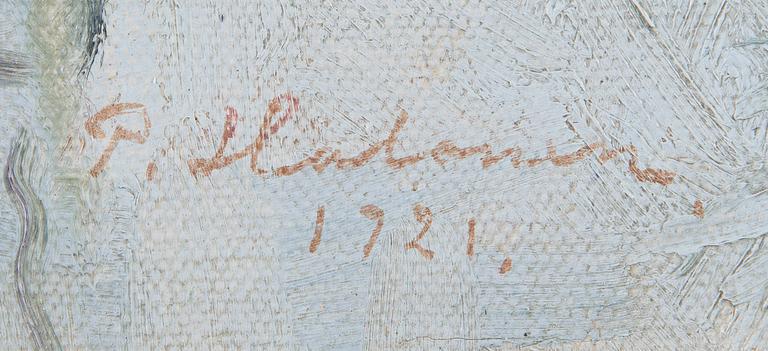 P. Halonen.
1921.